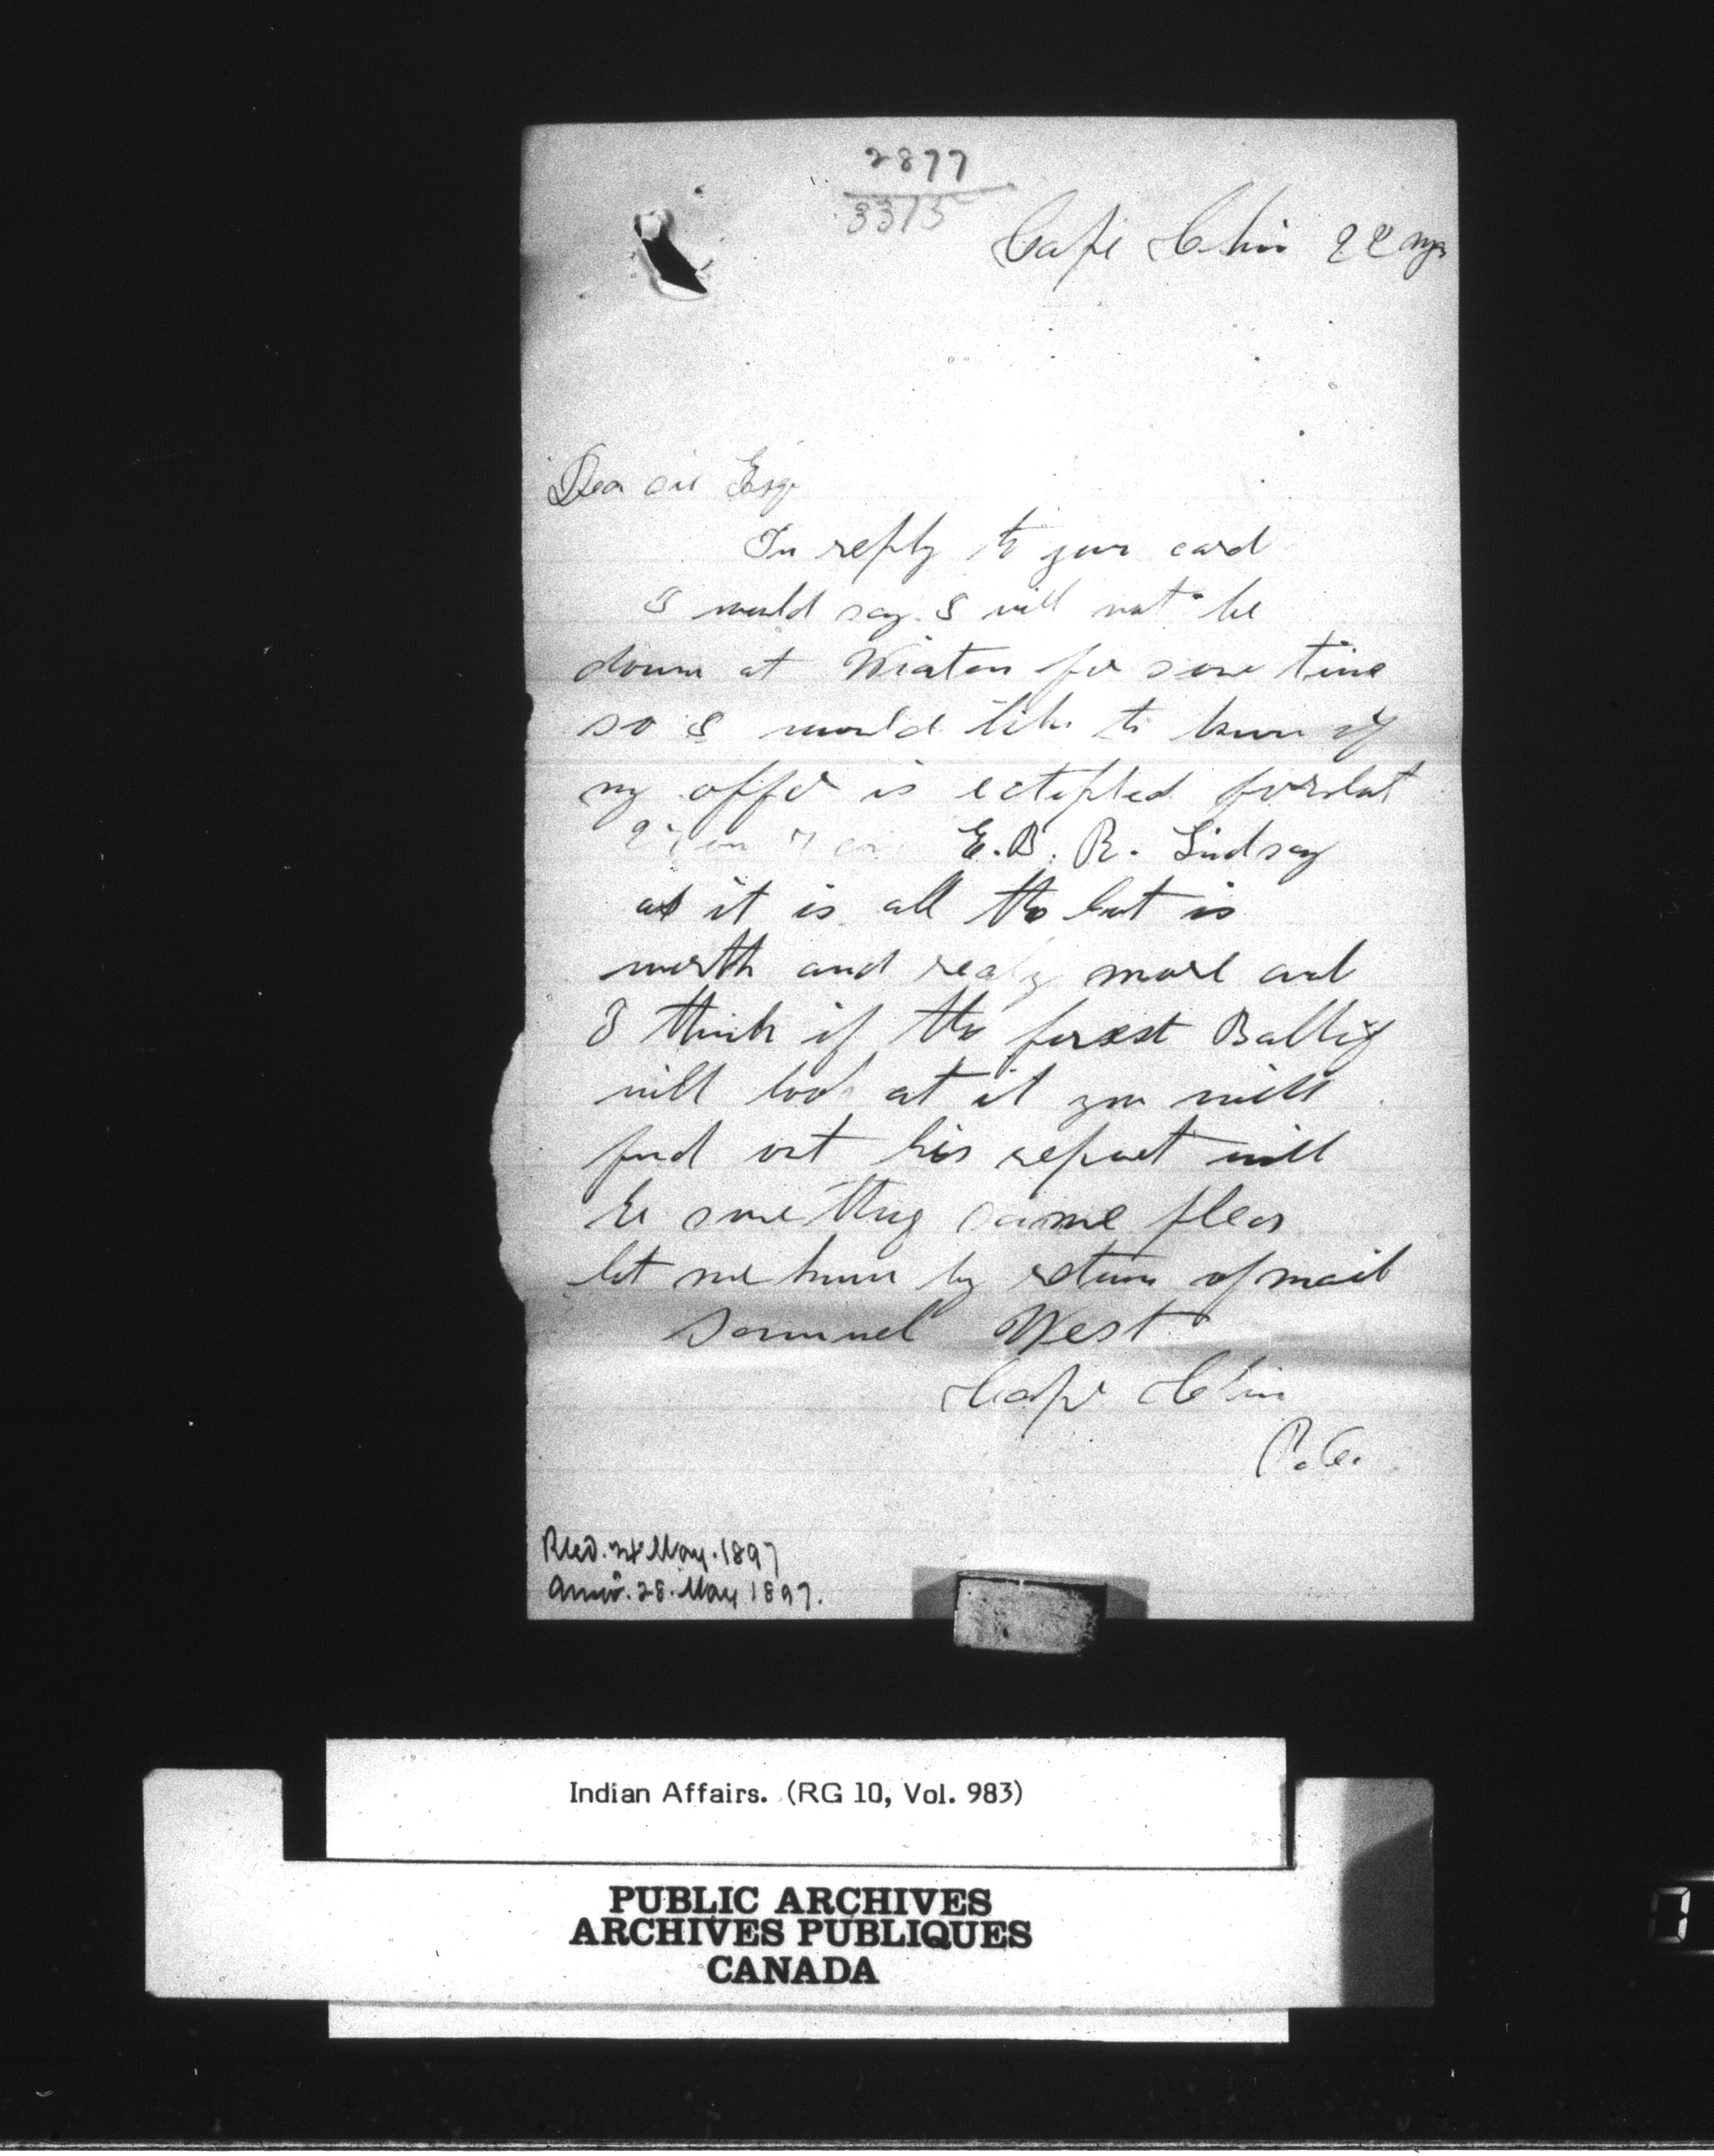 2877
3375
Cape Chin 22 My
Dear sir Esq
In reply to your card
I would say I will not be
down at Wiarton for some time
so I would like to know if
my offer is ectepted for lot
27 on 7 con E.B.R. Lindsay
as it is all the lot is
worth and realy more and
I think if the forest Baliff
will look at it you will
find out his report will
be some thing same pleas
let me know by return of mail
Samuel West
Cape Chin
P.O.
Rec'd. 24 May. 1897
Answ'd. 28. May 1897.
Indian Affairs. (RG 10, Vol. 983)
PUBLIC ARCHIVES
ARCHIVES PUBLIQUES
CANADA